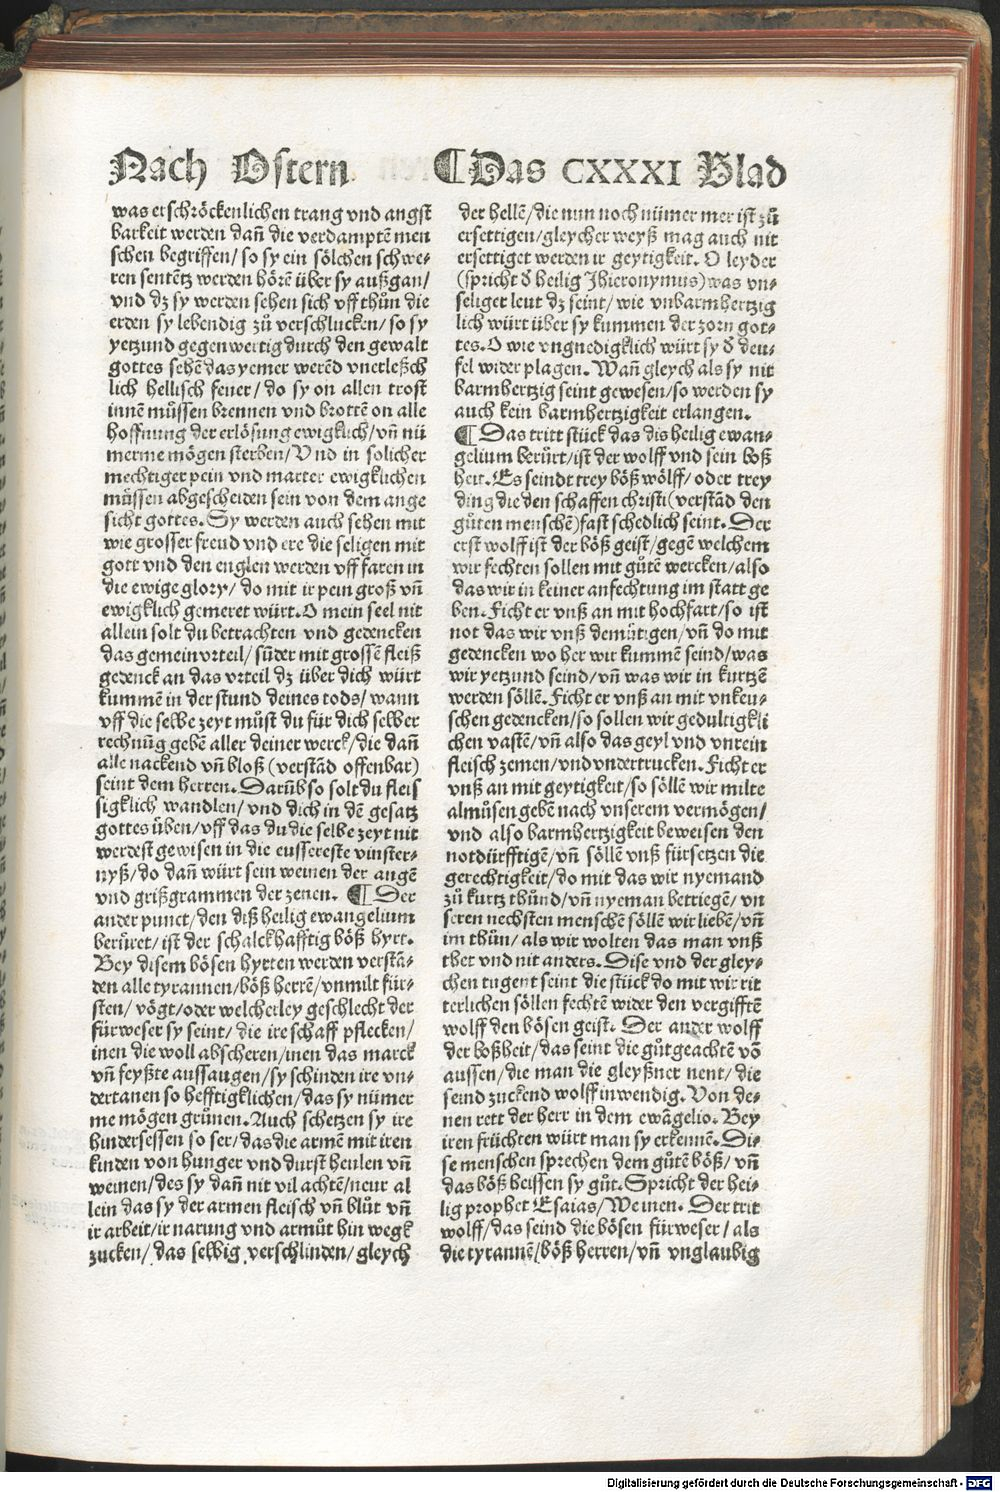 Nach Ostern ¶Das CXXXI Blad
was erschröckenlichen trang vnd angst
barkeit werden dañ die verdamptē men
schen begriffen/so sy ein sölchen schwe⸗
ren sentētz werden hörē über sy außgan/
vnd dz sy werden sehen sich vff thůn die
erden sy lebendig zů verschlucken/so sy
yetzund gegenwertig durch den gewalt
gottes sehē das yemer werēd vnerleßch
lich hellisch feuer/do sy on allen trost
innē můssen brennen vnd brottē on alle
hoffnung der erlösung ewigklich/vñ nü
merme mögen sterben/Vnd in solicher
mechtiger pein vnd marter ewigklichen
müssen abgescheiden sein von dem ange
sicht gottes. Sy werden auch sehen mit
wie grosser freud vnd ere die seligen mit
gott vnd den englen werden vff faren in
die ewige glory/do mit ir pein groß vñ
ewigklich gemeret würt. O mein seel nit
allein solt du betrachten vnd gedencken
das gemein vrteil/sůder mit grossē fleiß
gedenck an das vrteil dz über dich würt
kummē in der stund deines tods/wann
vff die selbe zeyt můst du für dich selber
rechnūg gebē aller deiner werck/die dañ
alle nackend vñ bloß (verstād offenbar)
seint dem herren. Darūb so solt du fleis
sigklich wandlen/vnd dich in dē gesatz
gottes üben/vff das du die selbe zeyt nit
werdest gewisen in die eussereste vinster⸗
nyß/do dañ würt sein weinen der augē
vnd grißgrammen der zenen. ¶ Der
ander punct/den diß heilig ewangelium
berüret/ist der schalckhafftig böß hyrt.
Bey disem bösen hyrten werden verstā⸗
den alle tyrannen/böß herrē/vnmilt für⸗
sten/vögt/oder welcherley geschlecht der
fürweser sy seint/die ire schaff pflecken/
inen die woll abscheren/inen das marck
vñ feyßte aussaugen/sy schinden ire vn⸗
dertanen so hefftigklichen/das sy nümer
me mögen grůnen. Auch schetzen sy ire
hindersessen so ser/das die armē mit iren
kinden von hunger vnd durst heulen vñ
weinen/des sy dañ nit vil achtē/neur al
lein das sy der armen fleisch vñ blůt vñ
ir arbeit/ir narung vnd armůt hin wegk
zucken/das selbig verschlinden/gleych
der hellē/die nun noch nümer mer ist zů
ersettigen/gleycher weyß mag auch nit
ersettiget werden ir geytigkeit. O leyder
(spricht ð heilig Jhieronymus) was vn⸗
seliger leut dz seint/wie vnbarmhertzig
lich würt über sy kummen der zorn got⸗
tes. O wie vngnedigklich würt sy ð deu⸗
fel wider plagen. Wañ gleych als sy nit
barmhertzig seint gewesen/so werden sy
auch kein barmhertzigkeit erlangen.
¶ Das tritt stück das dis heilig ewan⸗
gelium berürt/ist der wolff vnd sein boß
heit. Es seindt trey böß wölff/oder trey
ding die den schaffen christi (verstād den
gůten menschē) fast schedlich seint. Der
erst wolff ist der böß geist/gegē welchem
wir fechten sollen mit gůtē wercken/also
das wir in keiner anfechtung im statt ge
ben. Ficht er vnß an mit hochfart/so ist
not das wir vnß demütigen/vñ do mit
gedencken wo her wir kummē seind/was
wir yetzund seind/vñ was wir in kurtzē
werden söllē. Ficht er vnß an mit vnkeu⸗
schen gedencken/so sollen wir gedultigkli
chen vastē/vñ also das geyl vnd vnrein
fleisch zemen/vnd vndertrucken. Ficht er
vnß an mit geytigkeit/so söllē wir milte
almůsen gebē nach vnserem vermögen/
vnd also barmhertzigkeit beweisen den
notdürfftigē/vñ söllē vnß fürsetzen die
gerechtigkeit/do mit das wir nyemand
zů kurtz thůnd/vñ nyeman betriegen/vn
seren nechsten menschē söllē wir liebē/vñ
im thůn/als wir wolten das man vnß
thet vnd nit anders. Dise vnd der gley⸗
chen tugent seint die stück do mit wir rit
terlichen söllen fechtē wider den vergifftē
wolff den bösen geist. Der ander wolff
der boßheit/das seint die gůtgeachtē vō
aussen/die man die gleyßner nent/die
seind zuckend wolff inwendig. Von de⸗
nen rett der herr in dem ewāgelio. Bey
iren früchten würt man sy erkennē. Di⸗
se menschen sprechen dem gůtē böß/vñ
das böß heissen sy gůt. Spricht der hei⸗
lig prophet Esaias/We inen. Der trit
wolff/das seind die bösen fürweser/als
die tyrannē/böß herren/vñ vnglaubig
Digitalisierung gefördert durch die Deutsche Forschungsgemeinschaft - DFG